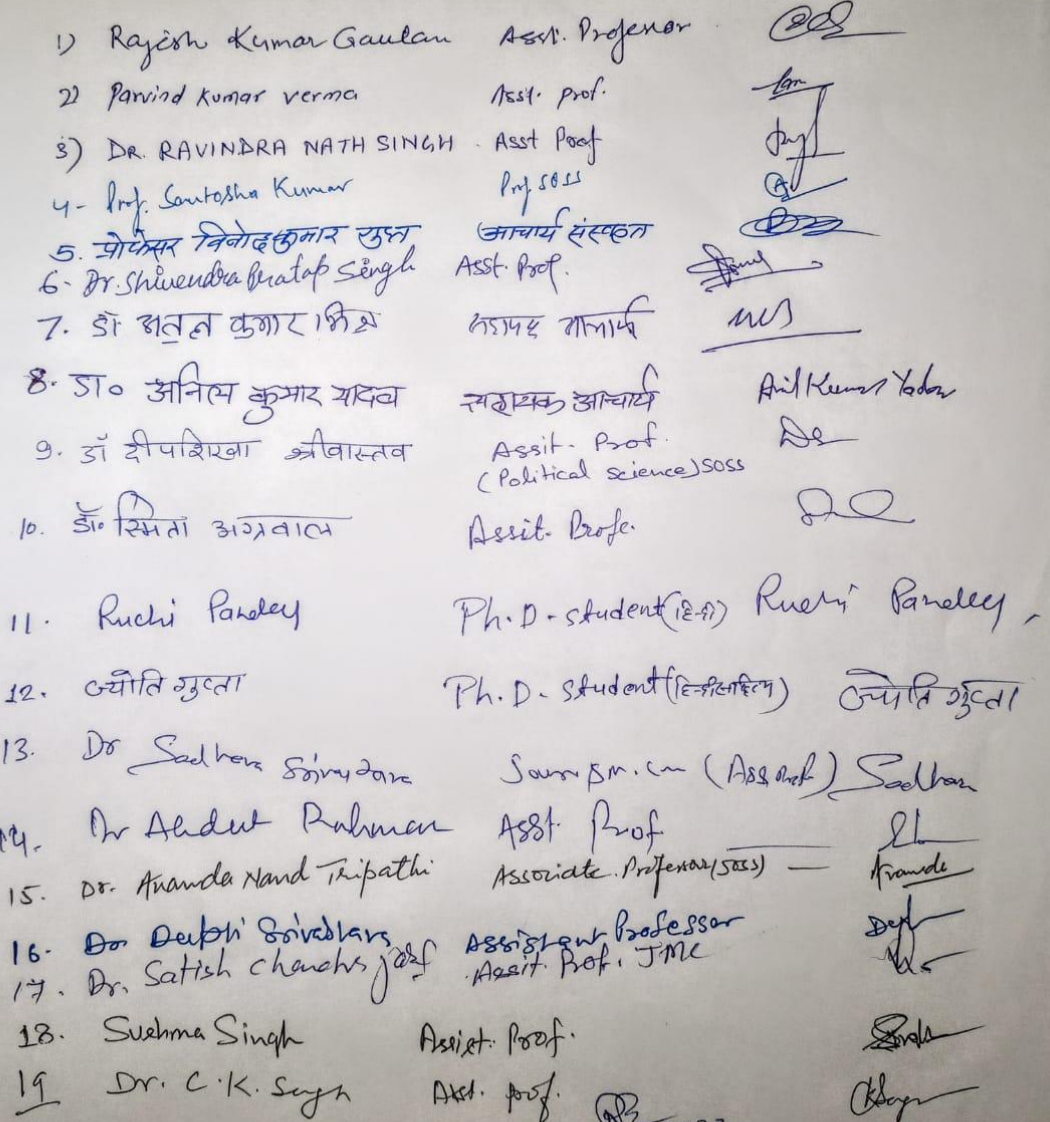 1) Rajesh Kumar Gautam Asst. Professor
2) Parvind Kumar verma Asst. prof.
3) DR. RAVINDRA NATH SINGH Asst Prof
4- Prof. Santosha Kumar Prof SOSS
5. प्रोफेसर विनोद कुमार गुप्त आचार्य संस्कृत
6- Dr. Shivendra Pratap Singh Asst. Prof.
7. डॉ अतुल कुमार मिश्र
8. डा० अनित्य कुमार यादव सहायक आचार्य Anil Kumar Yadav
9. डॉ दीपशिखा श्रीवास्तव Assit. Prof.
(Political science) SOSS
10. डॉ० स्मिता अग्रवाल Assit. Profe.
11. Ruchi Pandey Ph.D-student (हिन्दी) Ruchi Pandey
12. ज्योति गुप्ता Ph.D-student (हिन्दी साहित्य) ज्योति गुप्ता
13. Dr Sadhana Srivastava (Ass Prof) Sadhana
14. Dr Abdul Rahman Asst Prof
15. Dr. Ananda Nand Tripathi Associate Professor (SOSS) Ananda
16. Dr Deepti Srivastava Assistant Professor
17. Dr. Satish Chandra Assit. Prof. JMC
18. Sushma Singh Assist. Prof.
19 Dr. C.K. Singh Asst. prof. CKSingh